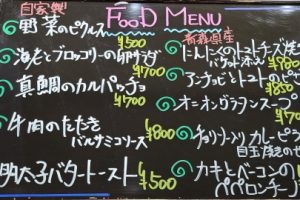 FOOD MENU
自家製
野菜のピクルス
¥500
海老とブロッコリーの卵サラダ
¥700
真鯛のカルパッチョ
¥700
牛肉のたたき
バルサミコソース
¥800
明太子バタートースト
¥500
青森県産
にんにくのトマトチーズ焼
バゲット添え
¥780
アンチョビとトマトのピ
¥850
オニオングラタンスープ
チョリソー入りカレーピラ
目玉焼きのせ
カキとベーコンの
ペペロンチーノ